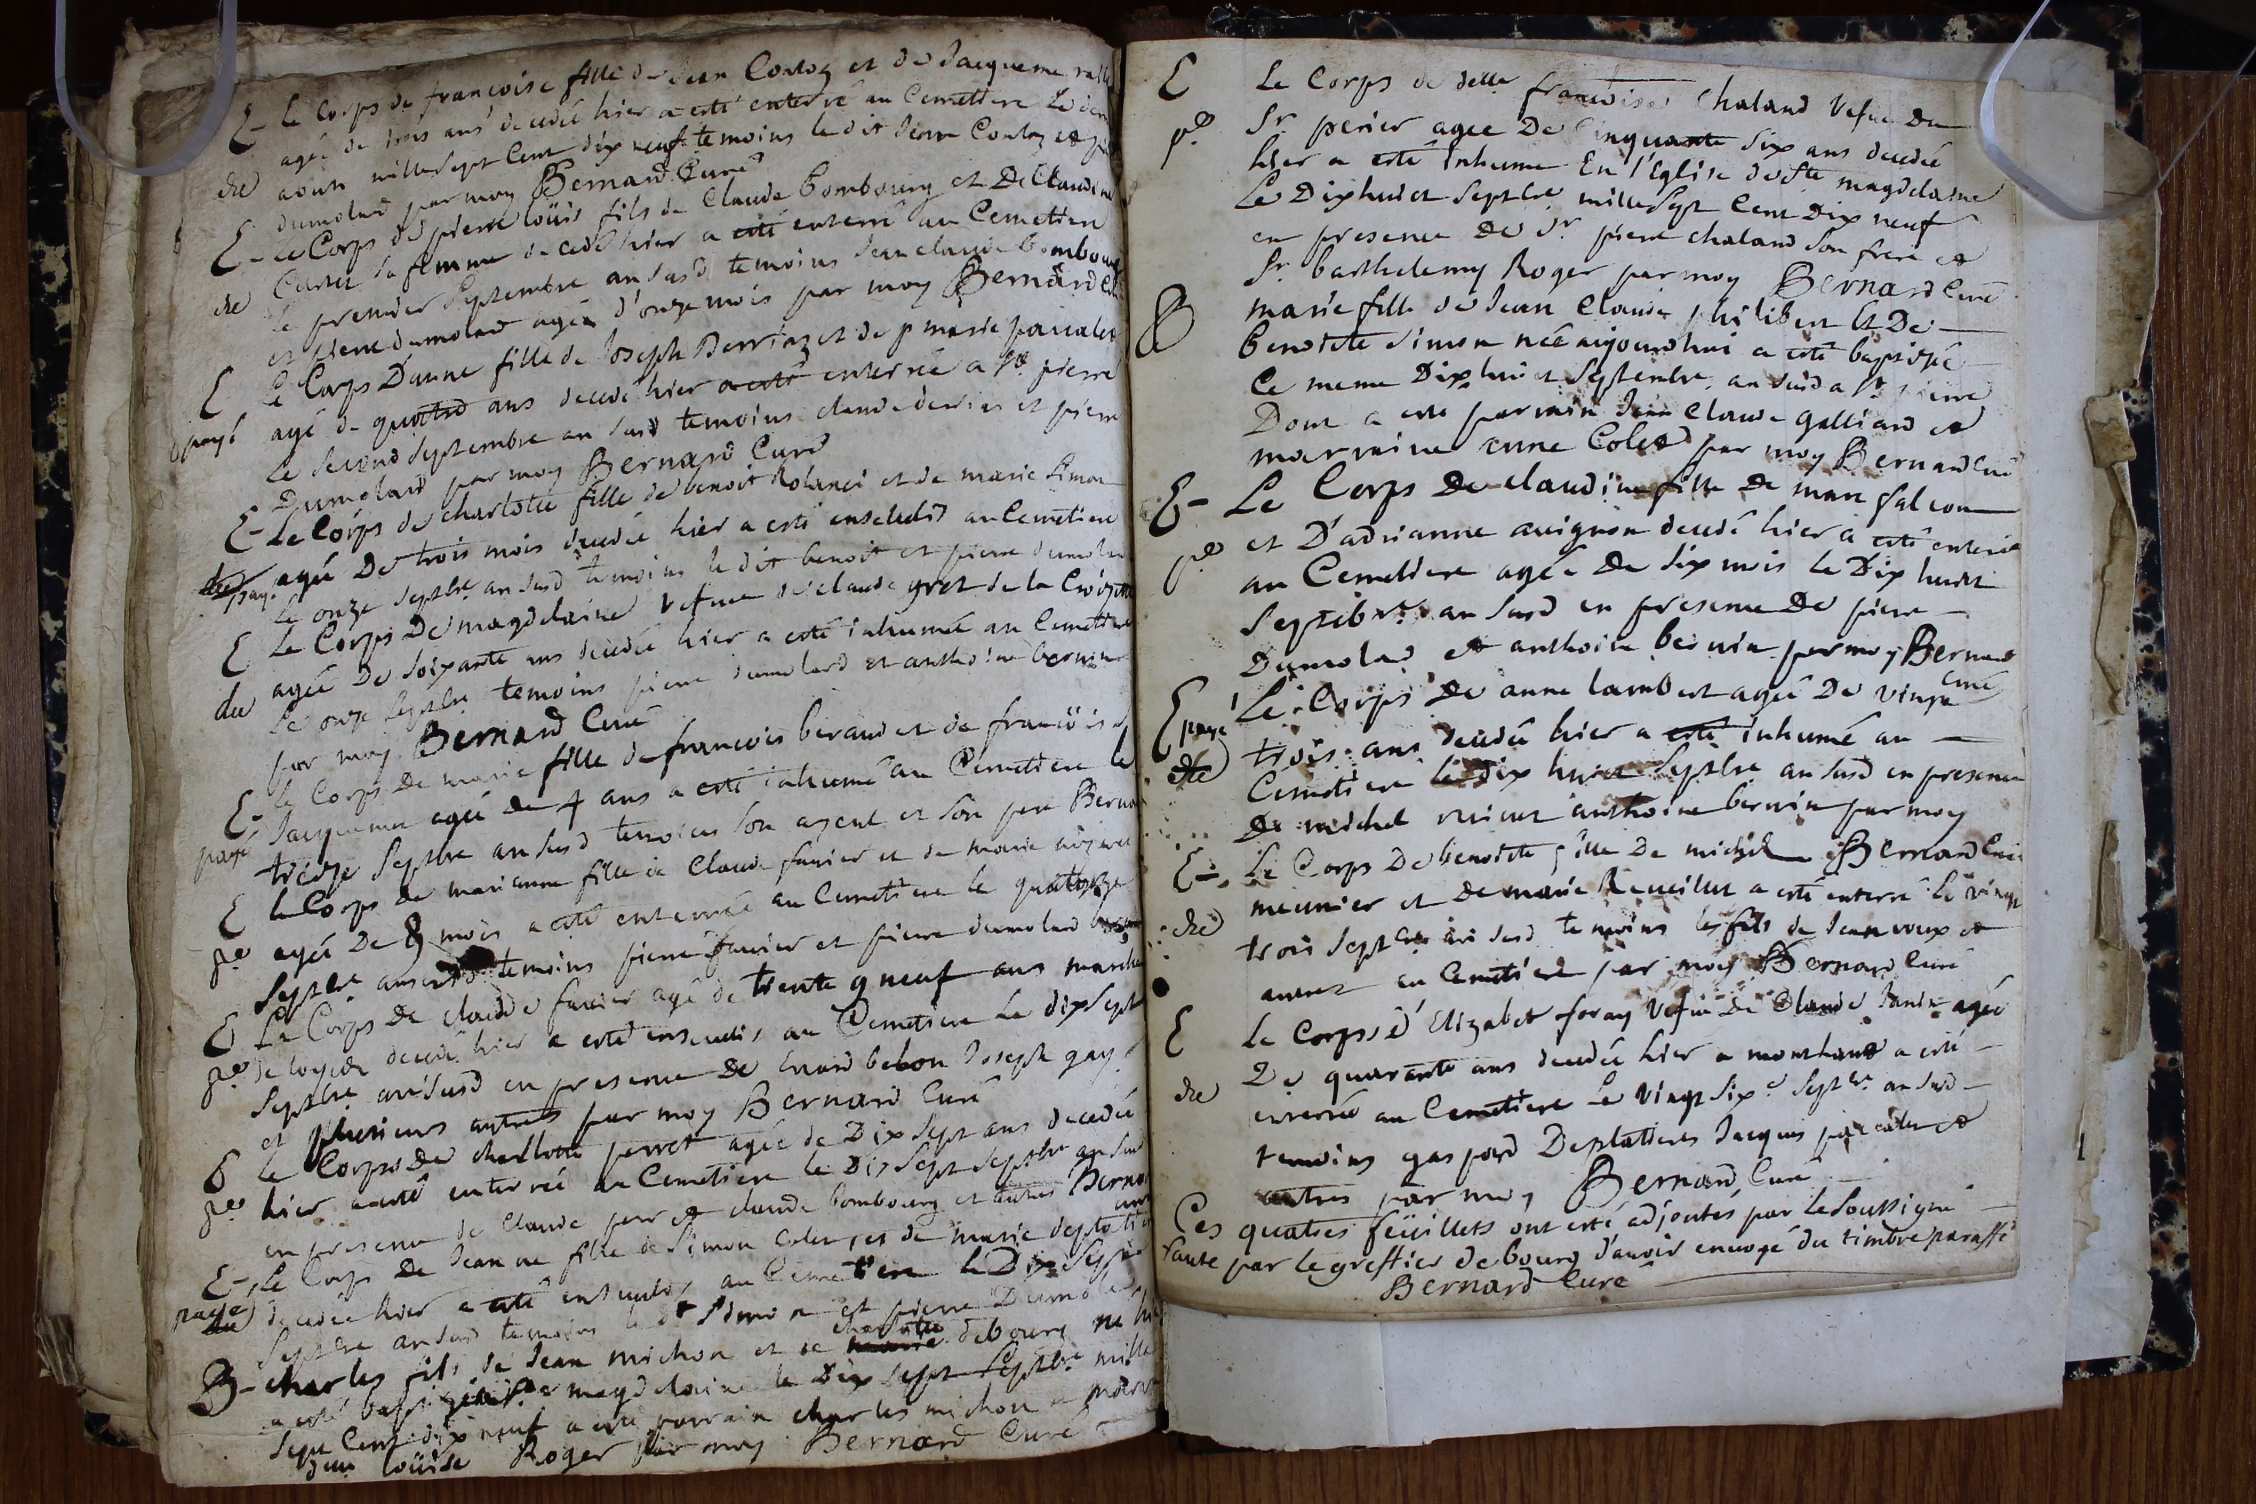 E- Le Corps de francoise fille de Jean Contoz et de Jacqueme
agée de trois ans decedée hier a esté enterré au Cemettiere Le
due aoust mille Sept Cent dix neuf temoins le dit Jean Contoz et
dumolard par moy Bernard Curé
E- Le Corps de pierre loüis fils de Claude bombourg et De Claudine
Curtet sa femme decedé hier a esté enterré au Cemettiere
due le premier Septembre an susd temoins Jean claude bombourg
et pierre dumolard agée d'onze mois par moy Bernard Curé
E Le Corps D'anne fille de Joseph Derrias et de marie
payé agé de quatre ans decedé hier a esté enterrée a St pierre
le second Septembre an susd temoins claude derrias et pierre
Dumolard par moy Bernard Curé
E- Le Corps de charlotte fille de benoit Rolanci et de marie Simon
due pay. agée De trois mois decedée hier a esté ensevelis au Cemetiere
le onze septbre an susd temoins le dit benoit et pierre dumolard
E Le Corps De magdelaine vefue de claude gret de la
due agée De Soixante ans decedée hier a esté inhumée au Cemetiere
Le onze Septbre temoins pierre dumolard et anthoine bernin
par moy Bernard Curé
E- Le Corps De marie fille de francois beraud et de francoise
payé Jacquemet agée de 4 ans a esté inhumé au Cemetiere le
treize Septbre an susd temoins son ayeul et son pere Bernard
E Le Corps de marianne fille de Claude favier et de marie
pe. agée De 8 mois a esté enterrée au Cemetiere le quatorze
Septbre an susd temoins pierre favier et pierre dumolard
E Le Corps De claude favier agé de trente neuf ans
pe. decedé hier a esté ensevelis au Cemetiere Le dix Sept
Septbre an susd en presence de bebon Joseph gay
et plusieurs autres par moy Bernard Curé
E Le Corps De charlotte perret agée de Dix Sept ans decedée
pe. hier a esté enterrée au Cemetiere le Dix Sept Septbre an susd
en presence de Claude perret claude bombourg et autres Bernard
curé
E- Le Corps De Jeanne fille de Simon Colet, et de marie
payé due decedée hier a esté ensevelis au Cemetiere le Dix Sept
Septbre an susd temoins le dt Simon et pierre Dumolard
charlotte
B- charles fils de Jean michon et de marie debourg né hier
a esté baptizé a Ste magdelaine le Dix Sept Septbre mille
Sept Cent dix neuf a esté parrain charles michon et marraine
louise Roger par moy Bernard Curé
E Le Corps de delle francoise Chaland Vefue Du
pe. Sr. perier agée De Cinquante Six ans decedée
hier a esté inhume En l'Eglise de Ste magdelaine
Le Dixhuict Septbre mille Sept Cent Dix neuf
en presence De Sr. pierre chaland son frere et
Sr. barthelemy Roger par moy Bernard Curé
B marie fille de Jean Claude philibert Et De
benoicte Simon née aujourdhui a esté baptizée
Ce meme Dixhuict Septembre an susd a St. pierre
Dont a esté parrain Jean Claude galliard et
marraine anne Colet par moy Bernard Curé
E- Le Corps De claudine fille De marc falcon
pe. et D'adrianne auignon decedé hier a esté enterré
au Cemettiere agée De Six mois le Dix huict
Septbre. an susd en presence De pierre
Dumolard et anthoine bernin par moy Bernard
Curé
E payé Le Corps De anne lambert agée De vingt
due trois ans decedée hier a esté inhumé au
Cemetiere le dix huict Septbre an susd en presence
De michel anthoine bernin par moy
E- Le Corps De benoicte fille De michel Bernard Curé
meunier et De marie a esté enterré le vingt
due trois Septbre an susd temoins les fils de Jean et
autres au Cemetiere par moy Bernard Curé
E Le Corps d'Elizabet foray Vefue De Claude Janin agée
De quarante ans decedée hier a a esté
due enterrée au Cemetiere Le vingt Sixe Septbre. an susd
temoins gaspard Deplatieres Jacques et
autres par moy Bernard Curé
Ces quatres feüillets ont esté adjoutés par Le Soussigné
faute par le greffier de bourg d'auoir enuoyé du timbre paraffé
Bernard Curé